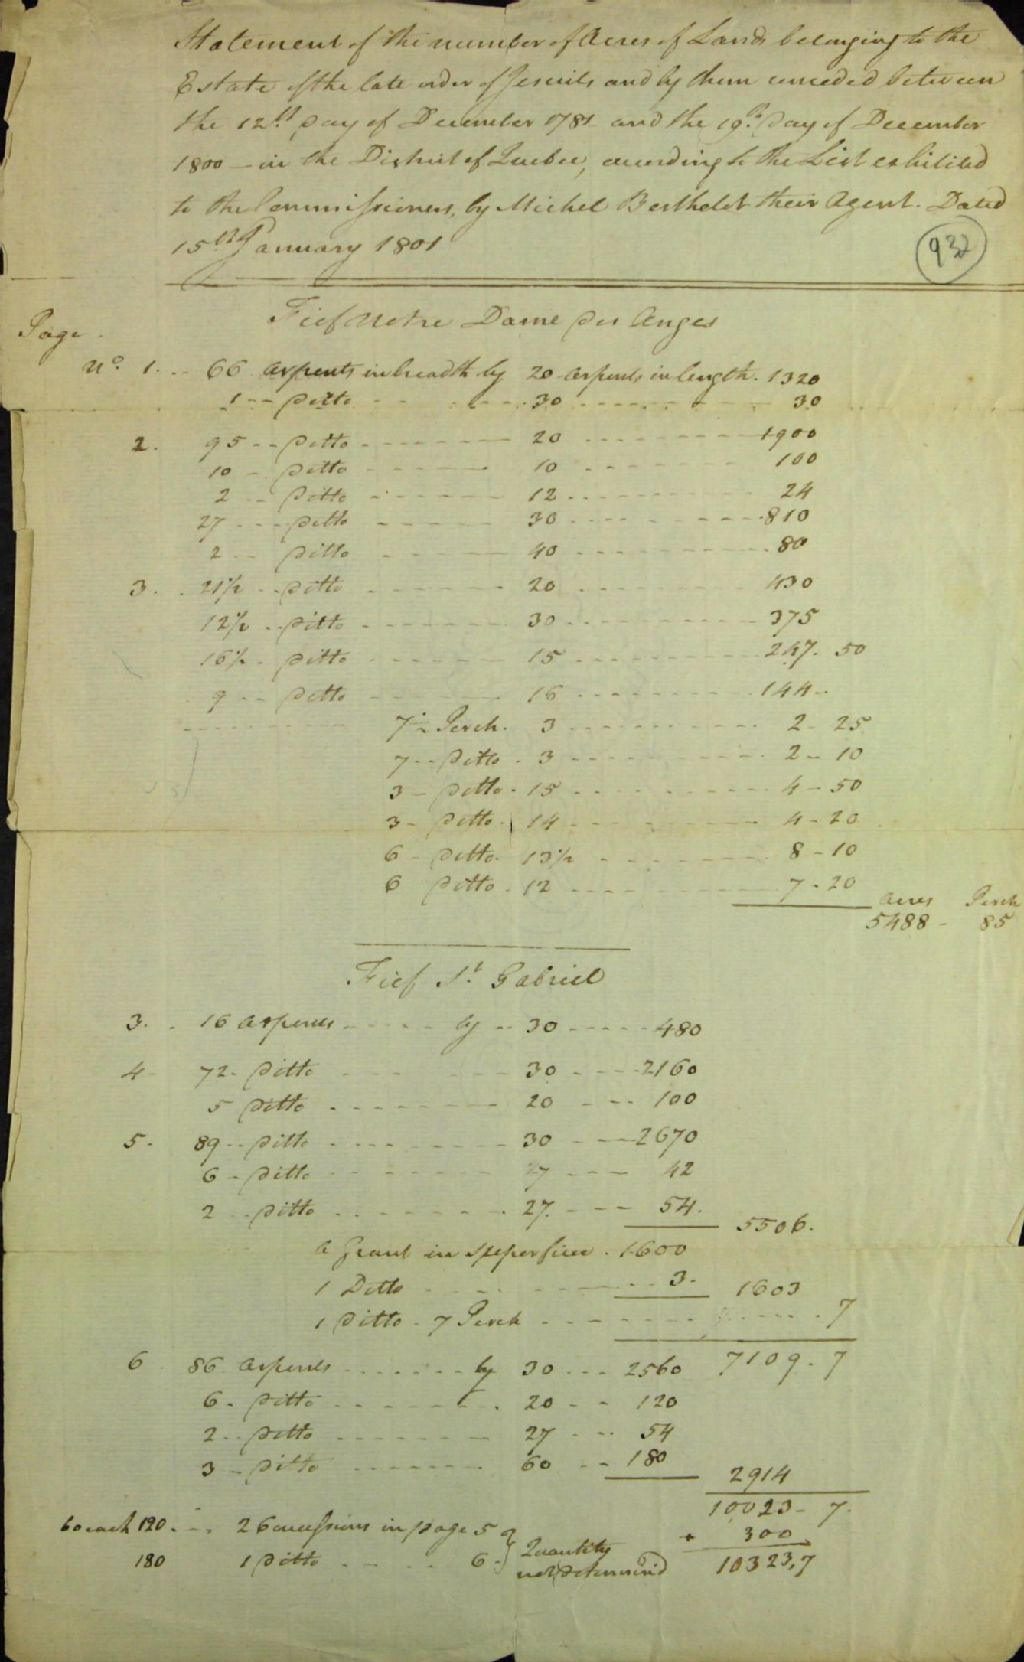 Statement of the number of Acres of Lands belonging to the
Estate of the late order of Jesuits and by them conceded between
the 12th Day of December 1781 and the 19th Day of December
1800 - in the District of Quebec, according to the List exhibited
to the Commissioners, by Michel Berthelot their Agent. Dated
15th January 1801
932
Fief Notre Dame Des Anges
Page
No. 1. 66 arpents in breadth by 20 arpents in length. 1320
1 Ditto 30 30
2. 95 Ditto 20 1900
10 Ditto 10 100
2 Ditto 12 24
27 Ditto 30 810
2 Ditto 40 80
3. 21½ Ditto 20 430
12½ Ditto 30 375
16½ Ditto 15 247. 50
9 Ditto 16 144
7½ Perch. 3 2 - 25
7 Ditto 3 2 - 10
3 Ditto 15 4 - 50
3 Ditto 14 4 - 20
6 Ditto 13½ 8 - 10
6 Ditto 12 7 - 20
Acres Perch
5488 - 85
Fief St Gabriel
3. 16 Arpents by 30 480
4 72 Ditto 30 2160
5 Ditto 20 100
5. 89 Ditto 30 2670
6 Ditto 7 42
2 Ditto 27 54.
5506.
a Grant in superficies. 1600
1 Ditto 3. 1603
1 Ditto - 7 Perch 7
7109 - 7
6 86 Arpents by 30 2560
6 Ditto 20 120
2 Ditto 27 54
3 Ditto 60 180
2914
10023 - 7.
60 each 120 2 Concessions in page 5 + 300
180 1 Ditto 6. Quantity not Determined 10323,7